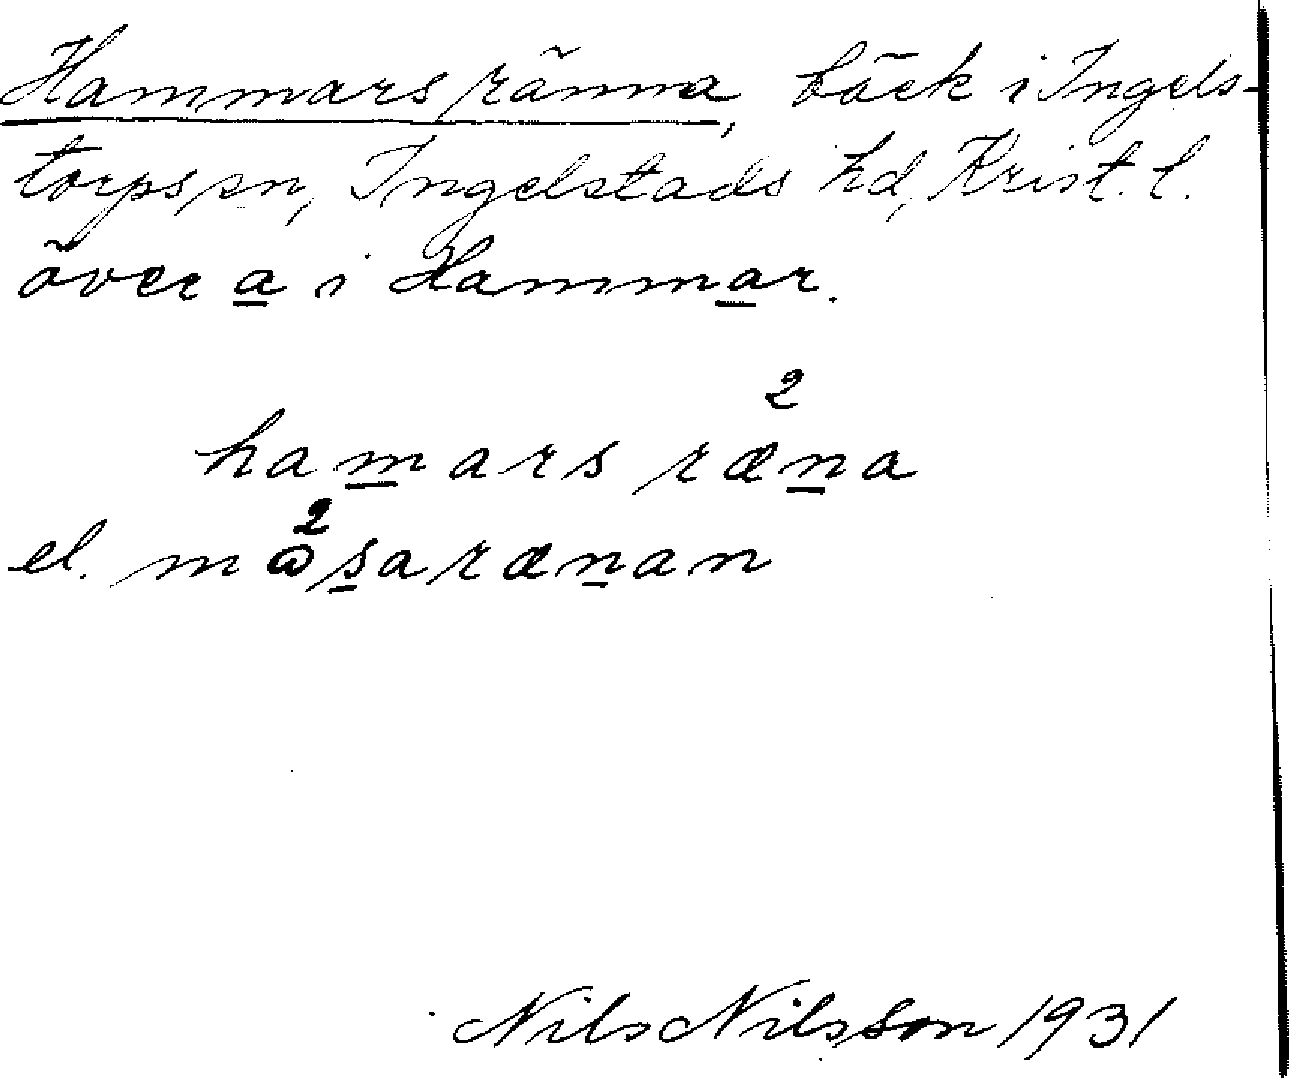 Hammars ränna, bäck i Ingels-
torps sn, Ingelstads hd, Krist. l.
över a i Hammar.
2
hamars ræna
2
el. mɷsarænan
Nils Nilsson 1931